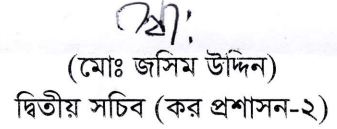 স্বা:
(মোঃ জসিম উদ্দিন)
দ্বিতীয় সচিব (কর প্রশাসন-২)